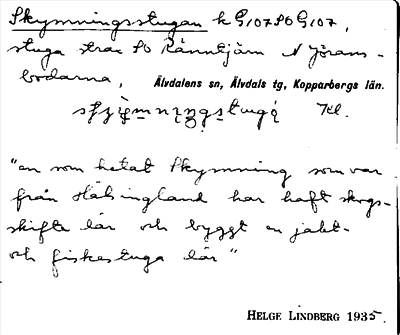 Skymningsstugan k G107 SO G107,
stuga strax SO Ränntjärn N Jörans-
bodarna, Älvdalens sn, Älvdals tg, Kopparbergs län.
Kl.
"en som hetat Skymning som var
från Hälsingland har haft skogs-
skifte här och byggt en jakt-
och fiskestuga här"
HELGE LINDBERG 1935.